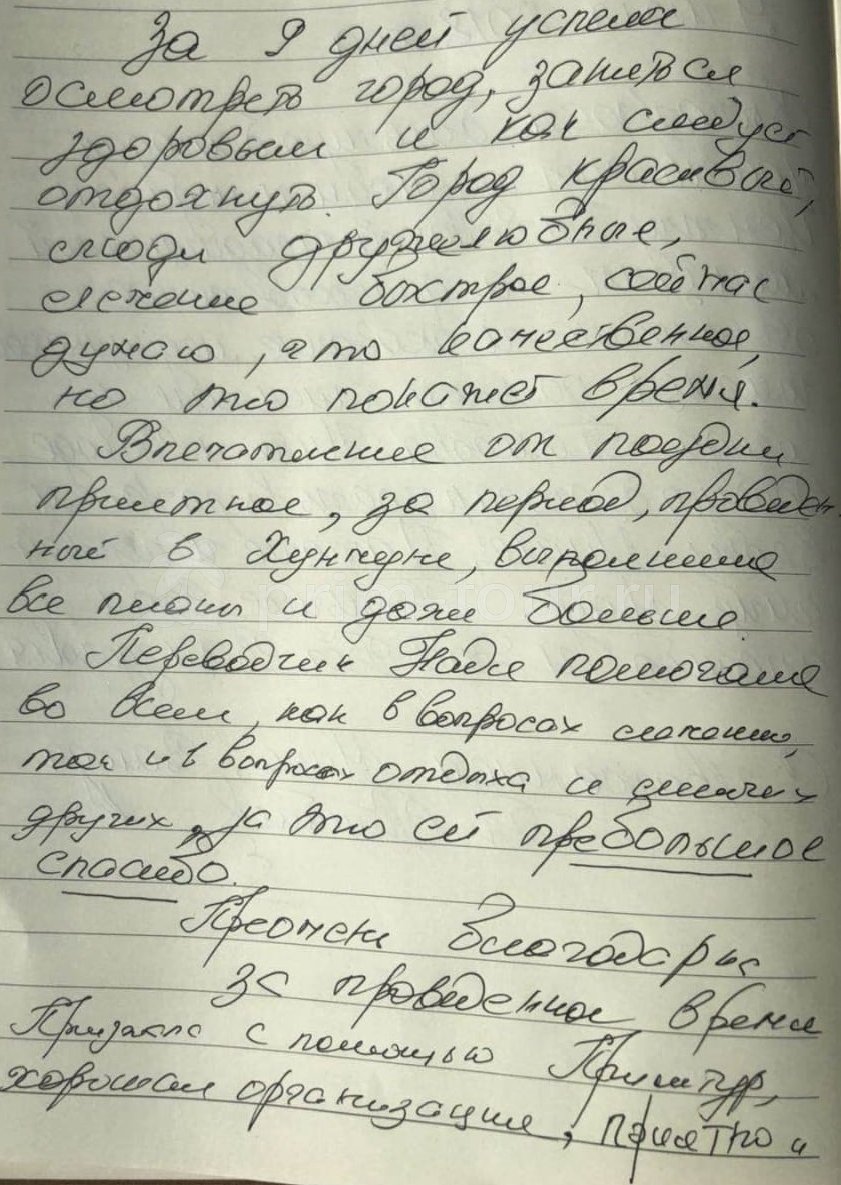 За 9 дней успела
осмотреть город, заняться
здоровьем и как следует
отдохнуть. Город красивый,
люди дружелюбные,
лечение быстрое, сейчас
думаю, что качественное,
но это покажет время.
Впечатление от поездки
приятное, за период, проведен-
ный в Хунчуне, выполнила
все планы и даже больше.
Переводчик Надя помогала
во всем, как в вопросах лечения,
так и в вопросах отдыха и многих
других, за это ей пребольшое
спасибо.
благодарна
за проведенное время
Приехала с помощью Примтур,
хорошая организация, приятно и
prim-tour.ru